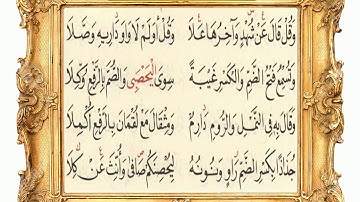 وَقُلْ قَالَ عَنْ شُهْدٍ وَآخِرُهَا عَلَا وَقُلْ أَوَلَمْ لَا وَاوَ دَارِيهِ وَصَّلَا
وَتُسْمِعُ فَتْحُ الضَّمِّ وَالْكَسْرِ غَيْبَةً سِوَى الْيَحْصَبِي وَالصُّمَّ بِالرَّفْعِ وُكِّلَا
وَقَالَ بِهِ فِي النَّمْلِ وَالرُّومِ دَارِمٌ وَمِثْقَالَ مَعْ لُقْمَانَ بِالرَّفْعِ أُكْمِلَا
جُذَاذًا بِكَسْرِ الضَّمِّ رَاوٍ وَنُونُهُ لِيُحْصِنَكُمْ صَافَى وَأُنِّثَ عَنْ كِلَا